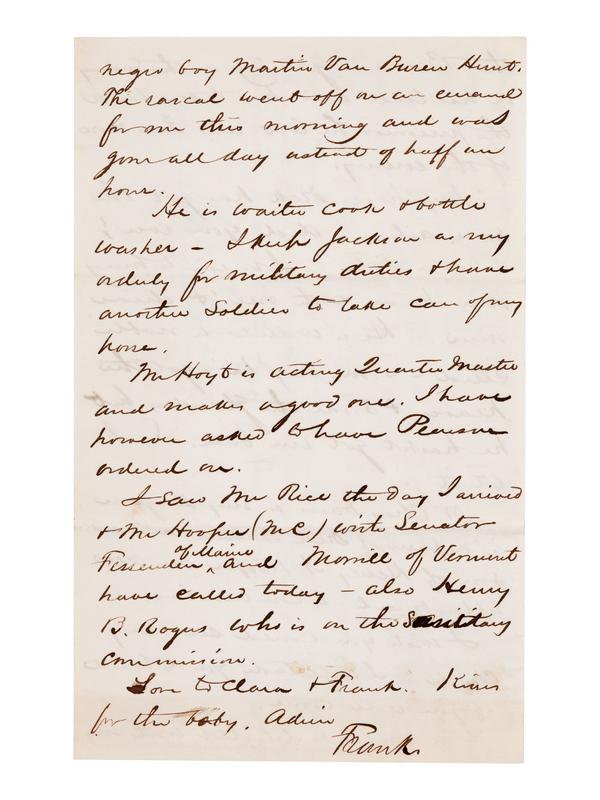 negro boy Martin Van Buren Hunt.
The rascal went off on an errand
for me this morning and was
gone all day instead of half an
hour.
He is waiter cook & bottle
washer – I keep Jackson as my
orderly for military duties & have
another Soldier to take care of my
horse.
Mr Hoyt is acting Quarter Master
and makes a good one. I have
however asked to have Pearson
ordered on.
I saw Mr Rice the day I arrived
& Mr Hooper (MC) with Senator
Fessenden ^ of Maine and Morrill of Vermont
have called today – also Henry
B. Rogers who is on the Sanitary
commission.
Love to Clara & Frank. Kisses
for the baby. Adieu
Frank